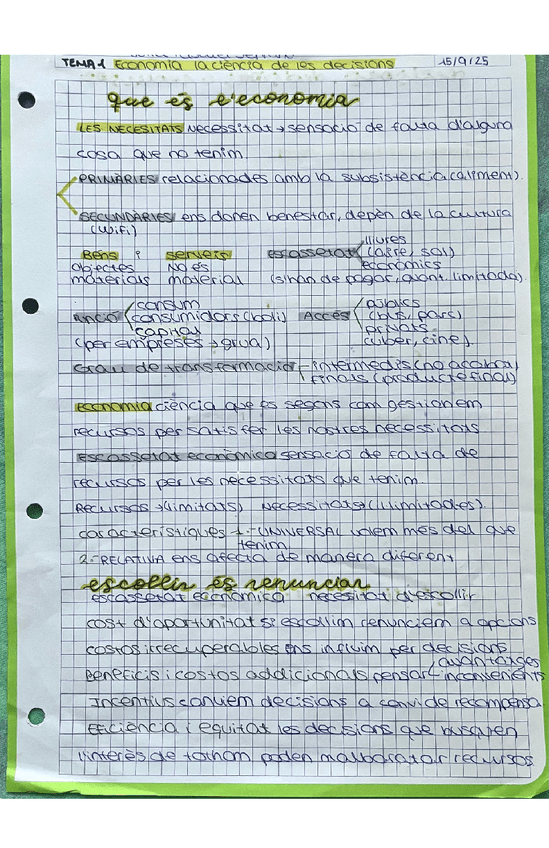 TEMA 1 Economia la ciència de les decisions 15/9/25
que és l'economia
LES NECESITATS Necessitat → sensació de falta d'alguna
cosa que no tenim.
PRIMÀRIES relacionades amb la subsistència (aliment).
SECUNDÀRIES ens donen benestar, depèn de la cultura
(wifi)
Bens i serveis escassetat lliures
objectes No és (aire, sol)
materials material económics
(s'han de pagar, quant. limitada).
consum Accés públics
consumidors (boli) (bus, parc)
capital privats
(per empreses → grua) (uber, cine).
Grau de transformació intermedis (no acabra)
finals (producte final)
Economia ciència que és segons com gestionem
recursos per satisfer les nostres necessitats
Escassetat econòmica sensació de falta de
recursos per les necessitats que tenim.
Recursos → (limitats) Necessitats (il·limitades).
característiques 1.- UNIVERSAL volem més del que
tenim
2.- RELATIVA ens afecta de manera diferent
escollir és renunciar
escassetat econòmica necesitat d'escollir
cost d'oportunitat si escollim renunciem a opcions
costos irrecuperables ens influim per decisions
avantatges
Beneficis i costos addicionals pensar inconvenients
Incentius canviem decisions a canvi de recompensa
Eficiència i equitat les decisions que busquen
l'interès de tothom poden malbaratar recursos